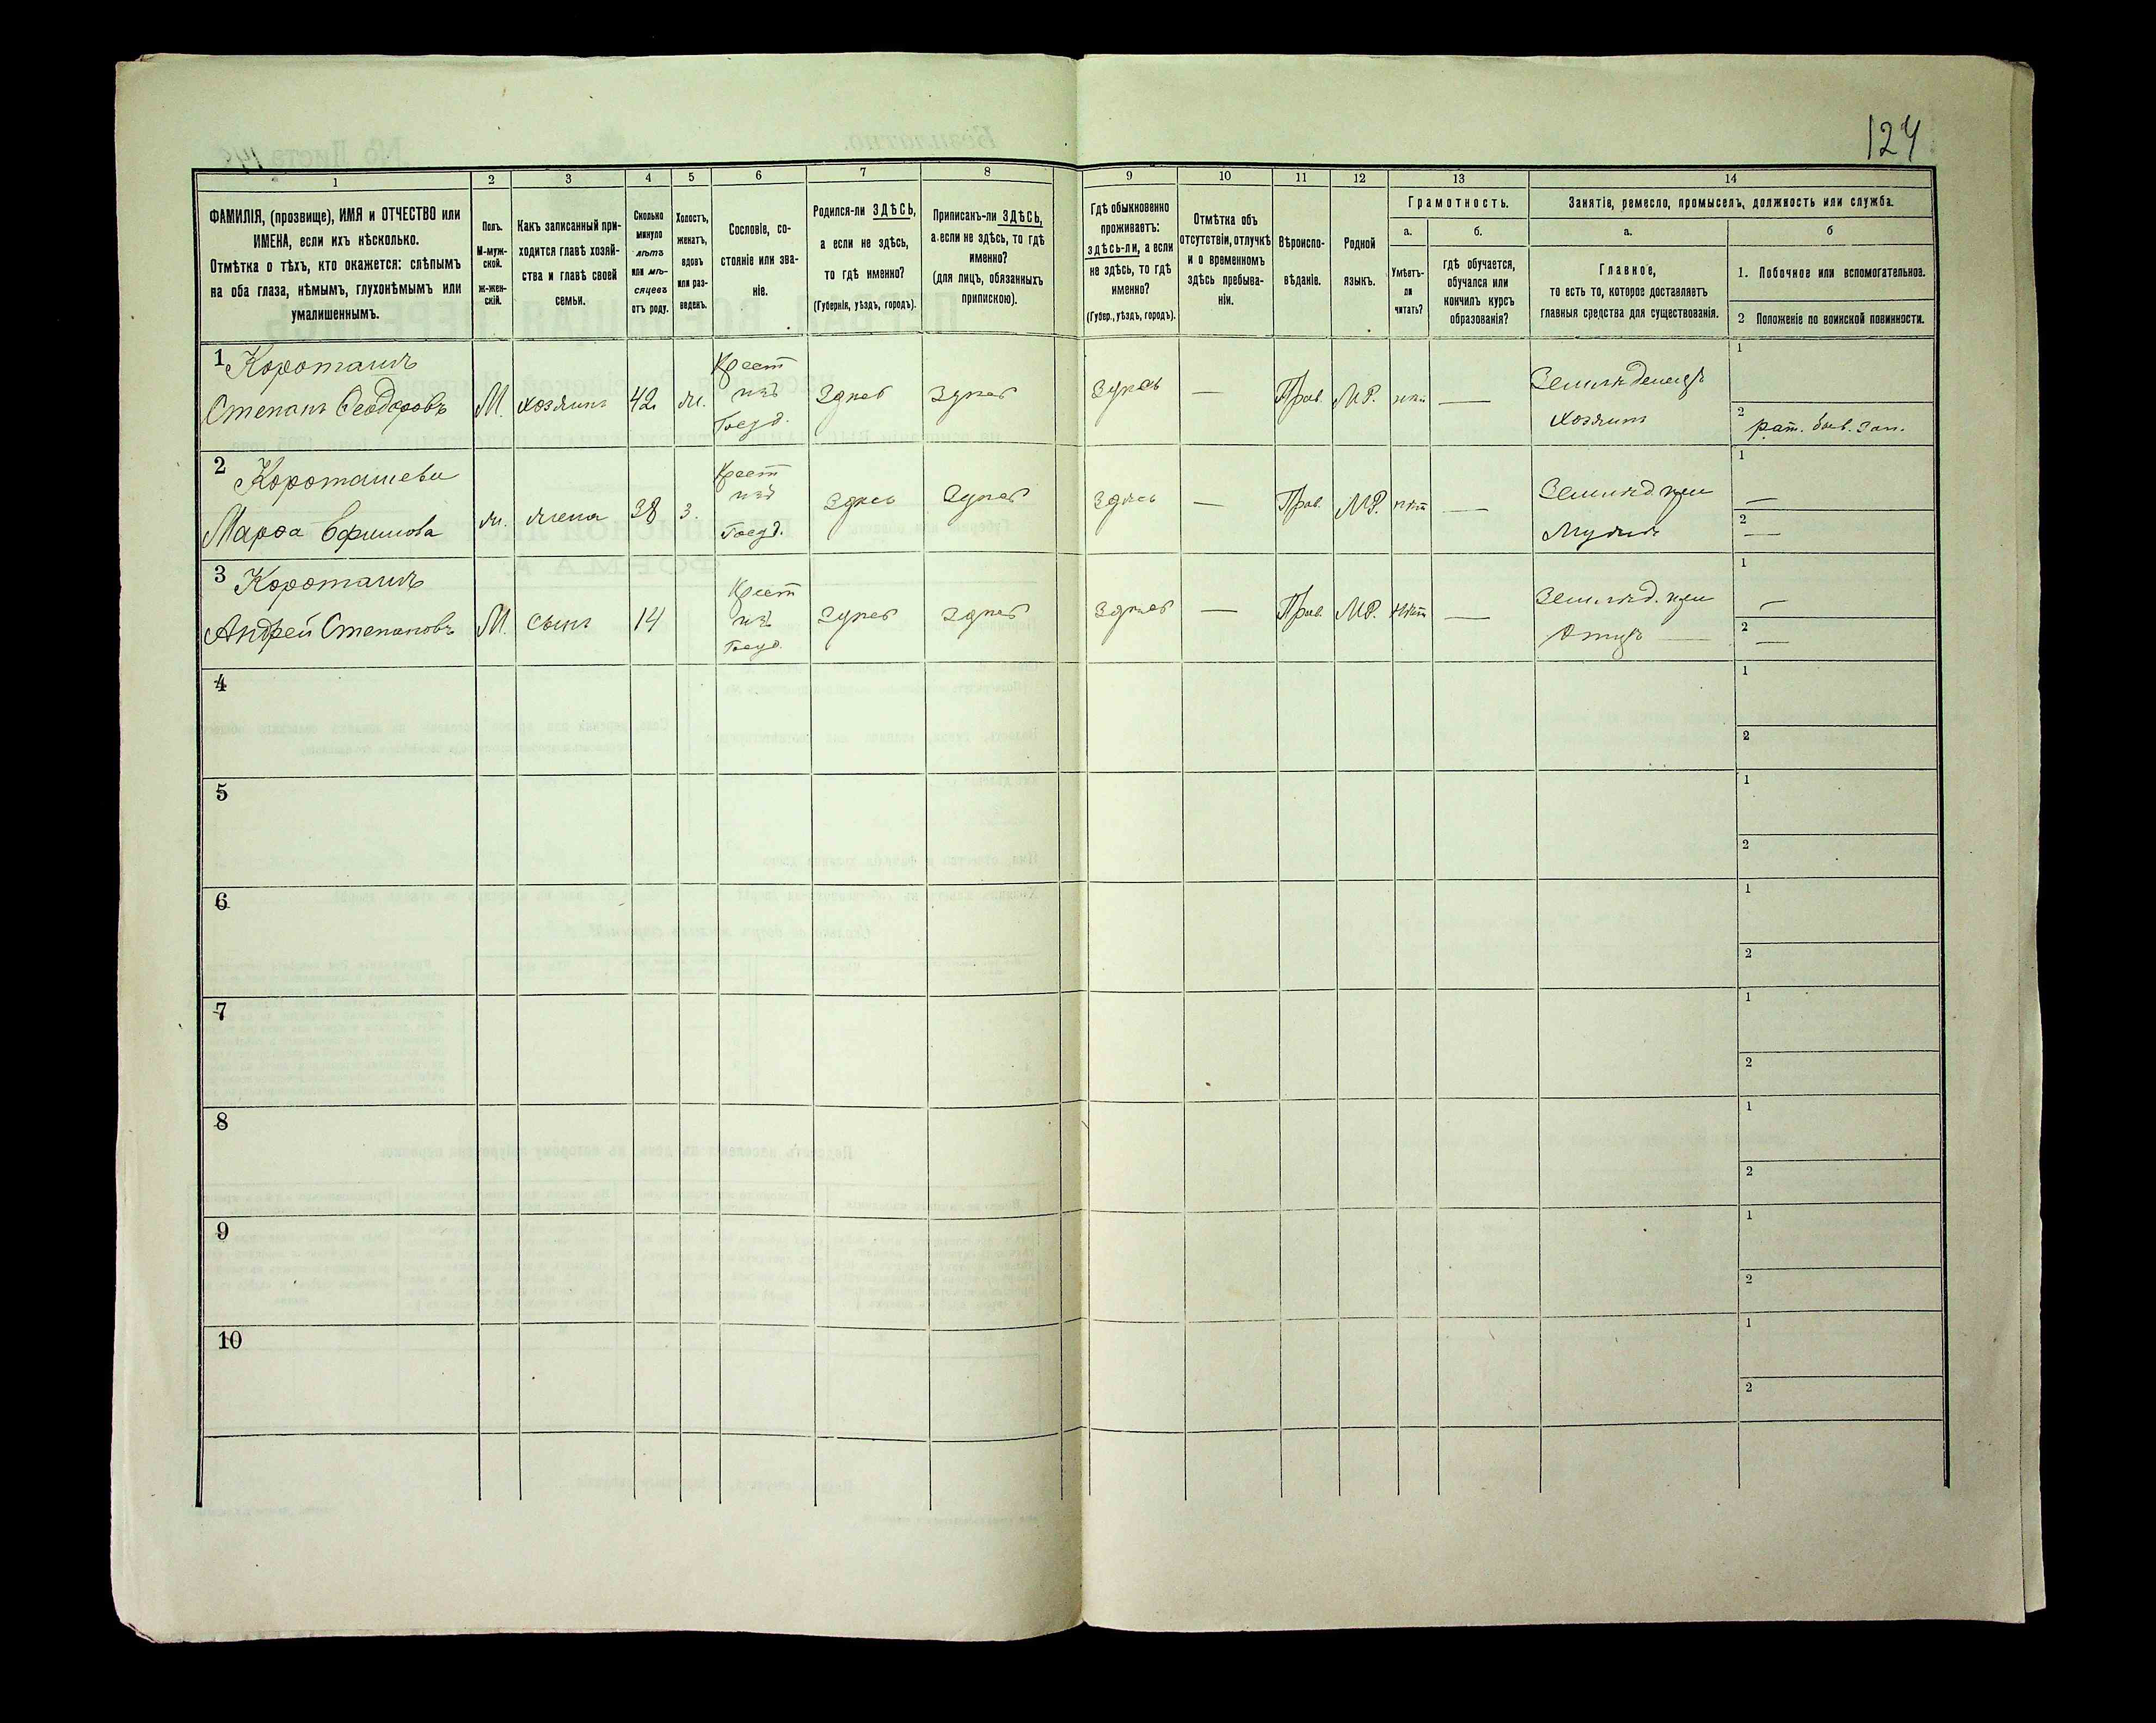 124
1
2
3
4
5
6
7
8
9
10
11
12
13
14
ФАМИЛІЯ, (прозвище), ИМЯ и ОТЧЕСТВО или
ИМЕНА, если ихъ нѣсколько.
Отмѣтка о тѣхъ, кто окажется: слѣпымъ
на оба глаза, нѣмымъ, глухонѣмымъ или
умалишеннымъ.
Полъ.
М-муж-
ской.
Ж-жен-
скій.
Какъ записанный при-
ходится главѣ хозяй-
ства и главѣ своей
семьи.
Сколько
минуло
лѣтъ
или мѣ-
сяцевъ
отъ роду.
Холостъ,
женатъ,
вдовъ
или раз-
веденъ.
Сословіе, со-
стояніе или зва-
ніе.
Родился-ли ЗДѢСЬ,
а если не здѣсь,
то гдѣ именно?
(Губернія, уѣздъ, городъ).
Приписанъ-ли ЗДѢСЬ,
а если не здѣсь, то гдѣ
именно?
(для лицъ, обязанныхъ
припискою).
Гдѣ обыкновенно
проживаетъ:
здѣсь-ли, а если
не здѣсь, то гдѣ
именно?
(Губер., уѣздъ, городъ).
Отмѣтка объ
отсутствіи, отлучкѣ
и о временномъ
здѣсь пребыва-
ніи.
Вѣроиспо-
вѣданіе.
Родной
языкъ.
Грамотность.
а.
Умѣетъ-
ли
читать?
б.
гдѣ обучается,
обучался или
кончилъ курсъ
образованія?
Занятіе, ремесло, промыселъ, должность или служба.
а.
Главное,
то есть то, которое доставляетъ
главныя средства для существованія.
б
1. Побочное или вспомогательное.
2 Положеніе по воинской повинности.
1 Короташъ
Степанъ Ѳеодоровъ
М.
хозяинъ
42
ж.
Крест
изъ
Госуд.
Здѣсь
Здѣсь
Здѣсь
—
Прав.
МР.
—
Земледелецъ
хозяинъ
1
2
рат.
зап.
2 Короташева
Марѳа Ефимова
ж.
жена
38
З.
Крест
изъ
Госуд.
Здѣсь
Здѣсь
Здѣсь
—
Прав.
МР.
нѣт
—
Землед. при
Мужѣ
1
—
2
—
3 Короташъ
Андрей Степановъ
М.
сынъ
14
Крест
изъ
Госуд.
Здѣсь
Здѣсь
Здѣсь
—
Прав.
МР.
нѣт
—
Землед. при
Отцѣ —
1
—
2
—
4
1
2
5
1
2
6
1
2
7
1
2
8
1
2
9
1
2
10
1
2